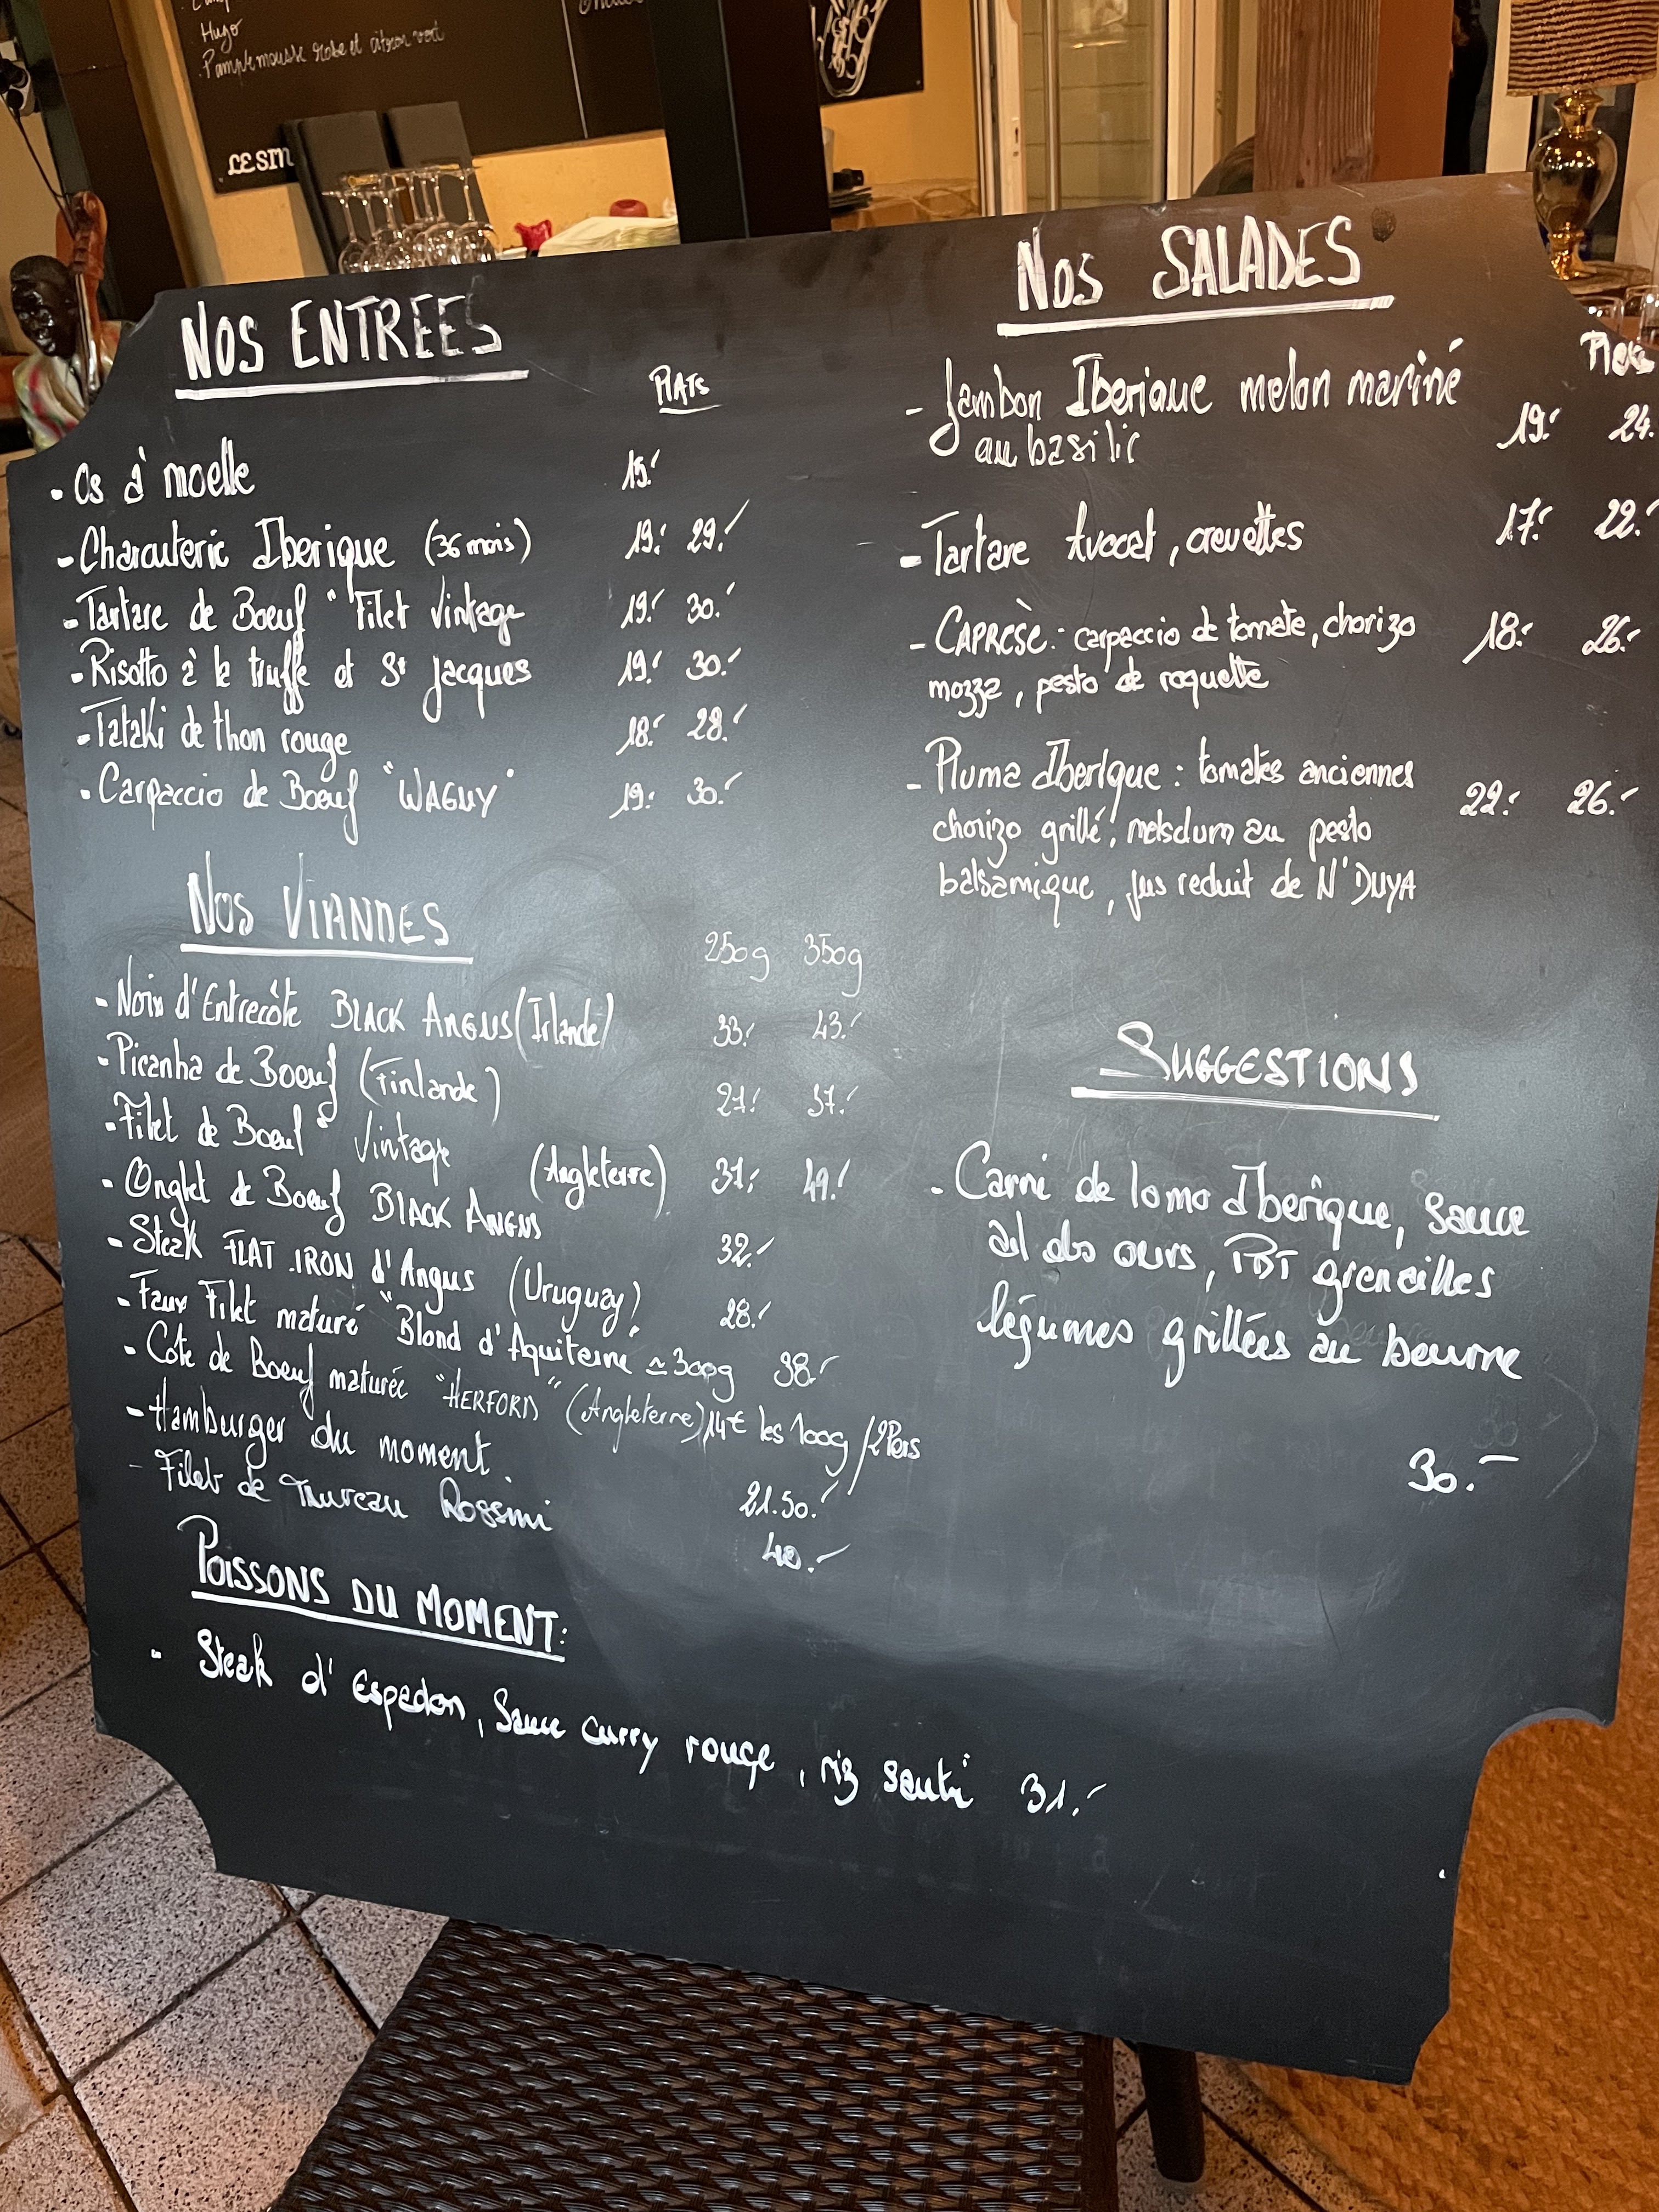 Hugo
Pamplemousse rose et citron vert
LE SIN
NOS ENTREES
PLATS
- Os à moelle 15.-
- Charcuterie Iberique (36 mois) 19.- 29.-
- Tartare de Boeuf " Filet Vintage 19.- 30.-
- Risotto à la truffe et St Jacques 19.- 30.-
- Tataki de thon rouge 18.- 28.-
- Carpaccio de Boeuf "WAGUY" 19.- 30.-
NOS VIANDES
250g 350g
- Noix d'Entrecôte BLACK ANGUS (Irlande) 33.- 43.-
- Picanha de Boeuf (Finlande) 27.- 37.-
- Filet de Boeuf " Vintage (Angleterre) 37.- 49.-
- Onglet de Boeuf BLACK ANGUS 32.-
- Steak FLAT IRON d'Angus (Uruguay) 28.-
- Faux Filet maturé "Blond d'Aquitaine ≃300g 38.-
- Côte de Boeuf maturée "HERFORD" (Angleterre) 14€ les 100g /2Pers
- Hamburger du moment. 21.50.-
- Filet de Taureau Rossini 40.-
POISSONS DU MOMENT:
- Steak d'Espadon, Sauce curry rouge, riz sauté 31.-
NOS SALADES
- Jambon Iberique melon mariné
au basilic 19.- 24.
- Tartare Avocat, crevettes 17.- 22.-
- CAPRÈSE: carpaccio de tomate, chorizo 18.- 26.-
mozza, pesto de roquette
- Pluma Iberique: tomates anciennes 22.- 26.-
chorizo grillé, melsdum au pesto
balsamique, jus reduit de N'DUYA
SUGGESTIONS
- Carni de lomo Iberique, Sauce
ail des ours, PDT grenailles
légumes grillées au beurre
30.-